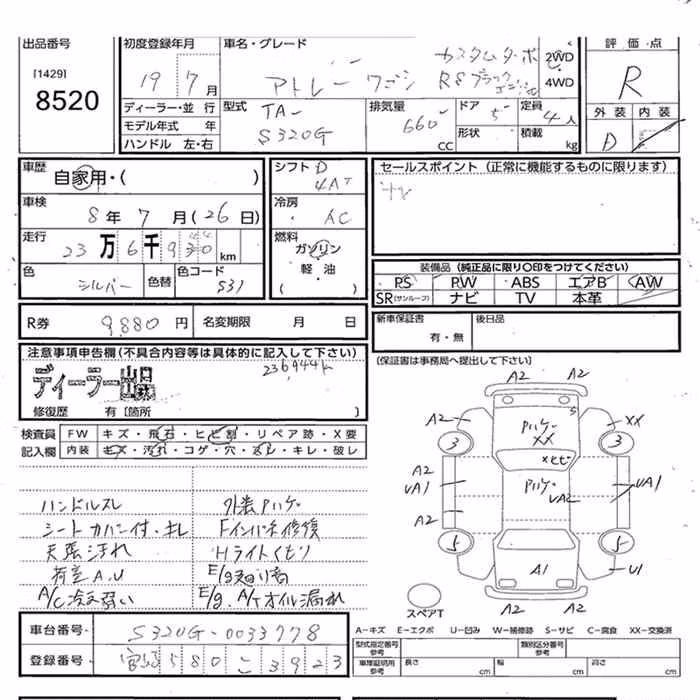 出品番号
[1429]
8520
初度登録年月
19 7 月
車名・グレード
アトレー ワゴン
カスタムターボ
RSブラック
2WD
4WD
評価点
R
外装 内装
D
ディーラー・並 行
モデル年式 年
ハンドル 左・右
型式
TA-
S320G
排気量
660
CC
ドア 5
形状
定員
4人
積載
kg
車歴
自家用・( )
車検
8年 7月(26日)
走行
23万6千930km
色
シルバー
色替
色コード
S31
シフト D
4AT
冷房
AC
燃料
ガソリン
軽・油
( )
セールスポイント (正常に機能するものに限ります)
装備品 (純正品に限り○印をつけてください)
PS PW ABS エアB AW
SR(サンルーフ) ナビ TV 本革
R券 9,880 円
名変期限 月 日
新車保証書
有・無
後日品
(保証書は事務局へ提出して下さい)
注意事項申告欄(不具合内容等は具体的に記入して下さい)
ディーラー出品
236944k
修復歴 有〔箇所 〕
検査員
記入欄
FW キズ・飛石・ヒビ割・リペア跡・X要
内装 キズ・汚れ・コゲ・穴・スレ・キレ・破レ
ハンドルスレ
シートカバー付・キレ
天張汚れ
荷室A.U
A/C冷え弱い
外装ハゲ
Fインパネ修復
Hライトくもり
E/g廻り音
E/g.A/Tオイル漏れ
A2 A2
A2 XX
ハゲ
XX
S
3 3
A2
UA1
A2
ハゲ
UA2
UA1
5 5
A1
U1
A2 A2
スペアT
A-キズ E-エクボ U-凹み W-補修跡 S-サビ C-腐食 XX-交換済
型式指定番号
参考
類別区分番号
参考
車庫証明用
参考
長さ cm
幅 cm
高さ cm
車台番号 S320G-0033778
登録番号 宮崎 580 こ 3923